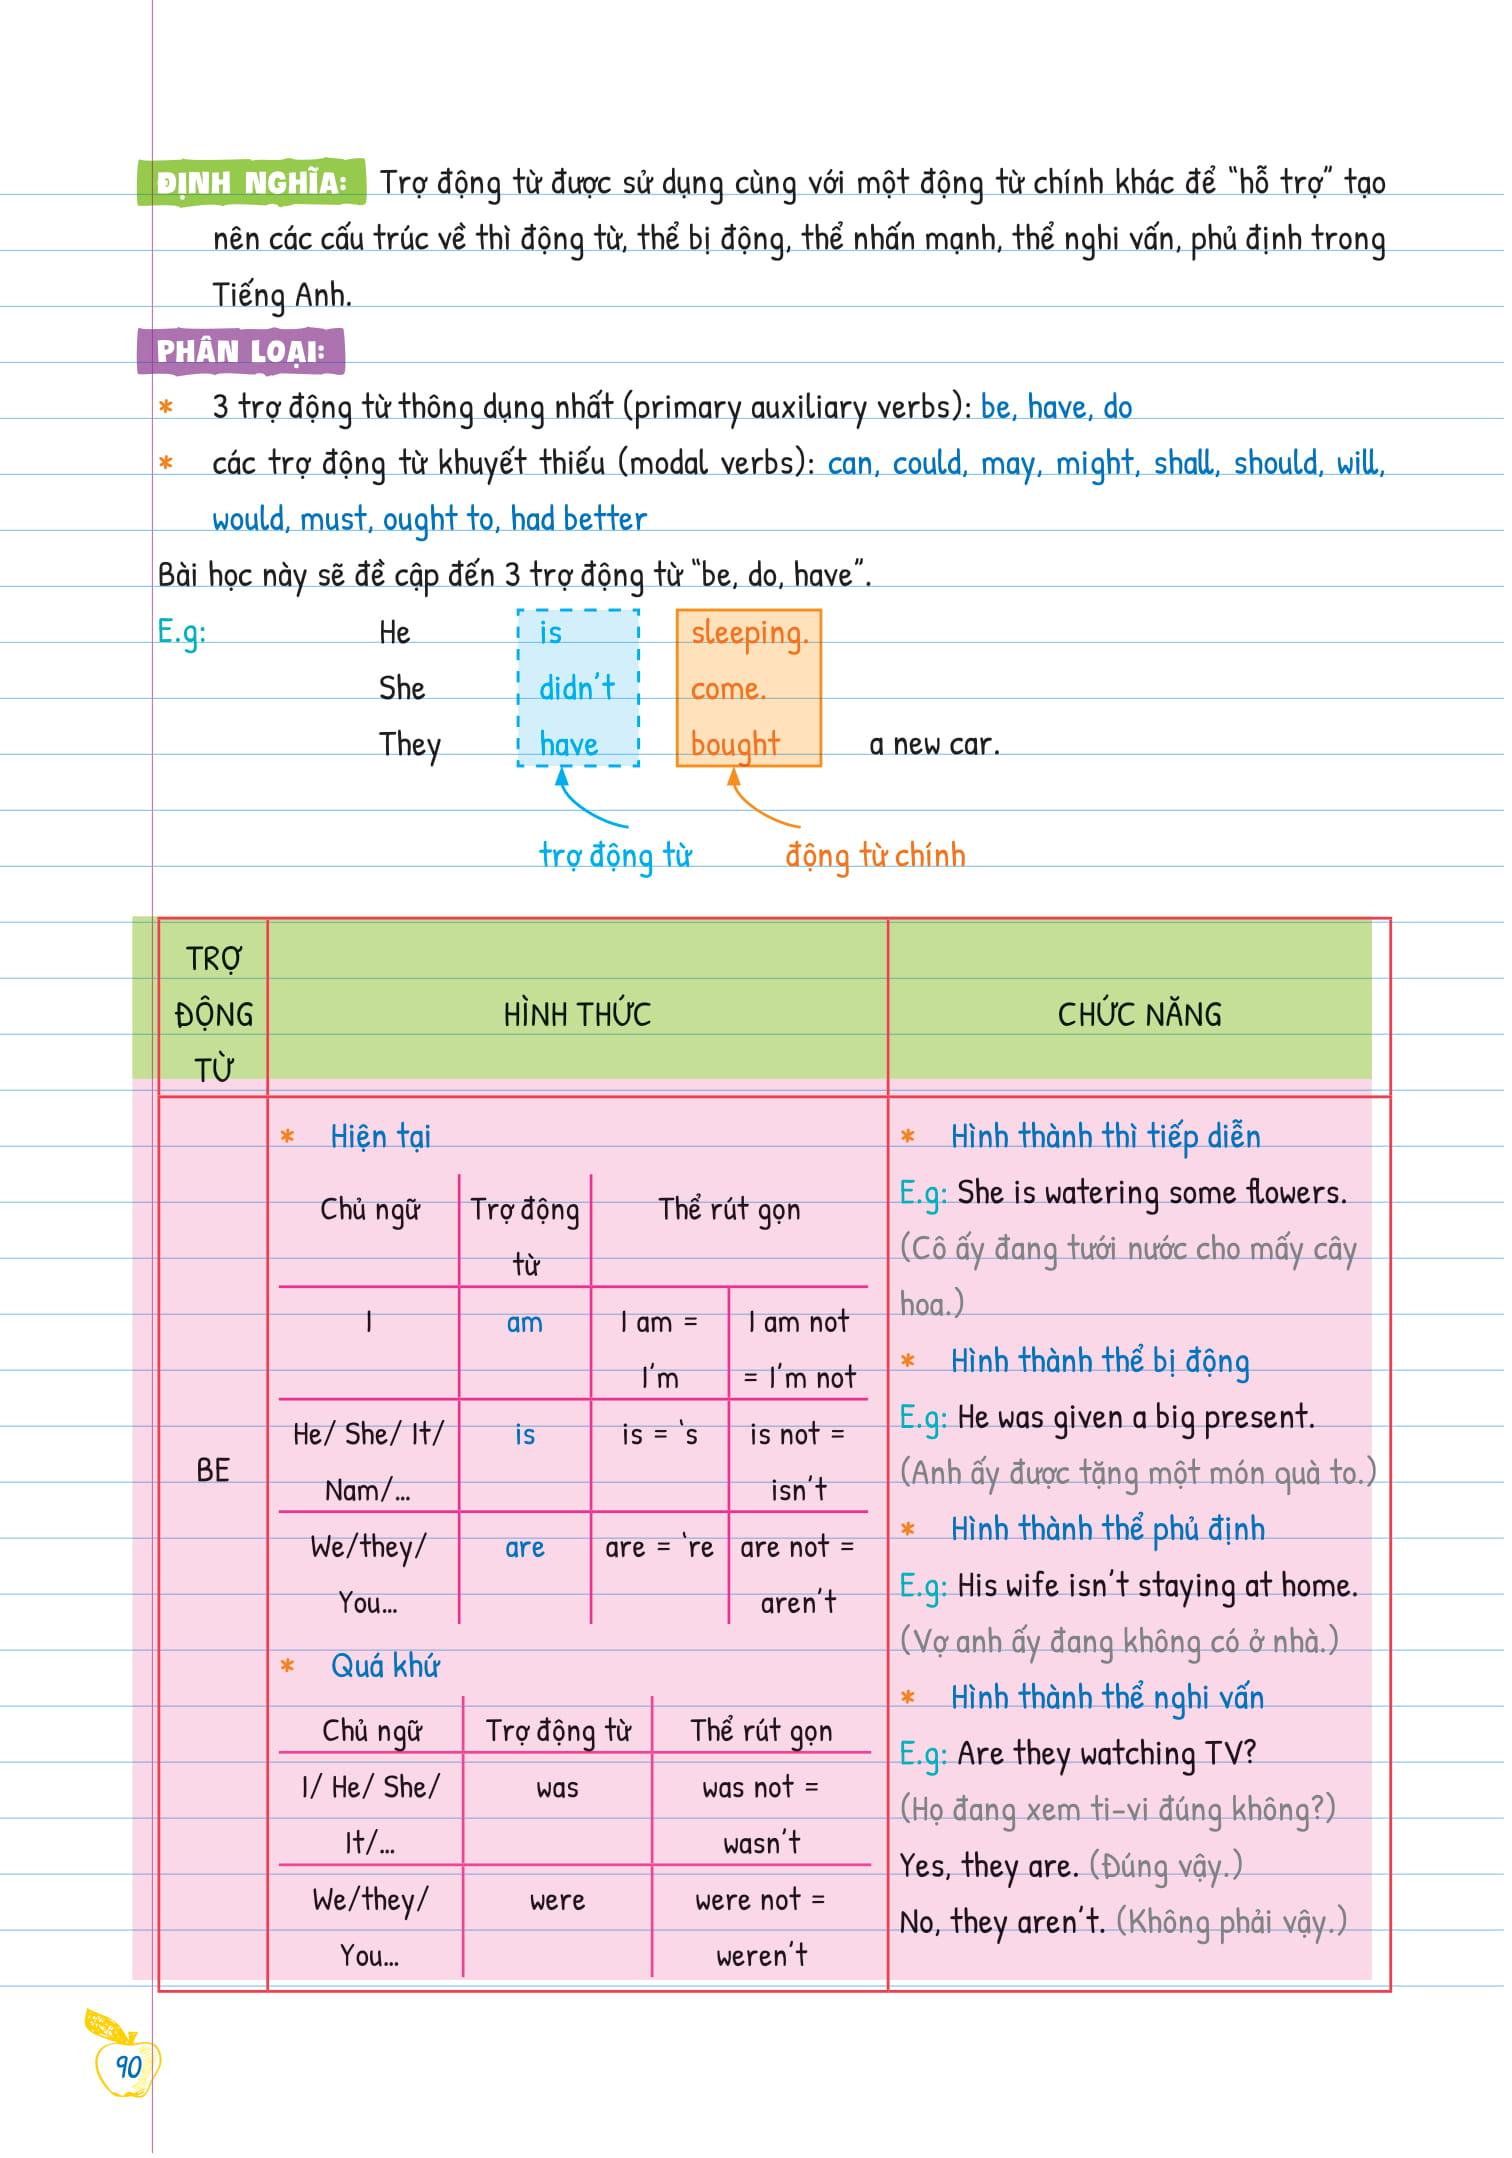 ĐỊNH NGHĨA: Trợ động từ được sử dụng cùng với một động từ chính khác để “hỗ trợ” tạo
nên các cấu trúc về thì động từ, thể bị động, thể nhấn mạnh, thể nghi vấn, phủ định trong
Tiếng Anh.
PHÂN LOẠI:
* 3 trợ động từ thông dụng nhất (primary auxiliary verbs): be, have, do
* các trợ động từ khuyết thiếu (modal verbs): can, could, may, might, shall, should, will,
would, must, ought to, had better
Bài học này sẽ đề cập đến 3 trợ động từ “be, do, have”.
E.g: He is sleeping.
She didn’t come.
They have bought a new car.
trợ động từ động từ chính
TRỢ
ĐỘNG
TỪ
HÌNH THỨC
CHỨC NĂNG
BE
* Hiện tại
Chủ ngữ Trợ động Thể rút gọn
từ
I am I am = I am not
I’m = I’m not
He/ She/ It/ is is = ‘s is not =
Nam/... isn’t
We/they/ are are = ‘re are not =
You... aren’t
* Quá khứ
Chủ ngữ Trợ động từ Thể rút gọn
I/ He/ She/ was was not =
It/... wasn’t
We/they/ were were not =
You... weren’t
* Hình thành thì tiếp diễn
E.g: She is watering some flowers.
(Cô ấy đang tưới nước cho mấy cây
hoa.)
* Hình thành thể bị động
E.g: He was given a big present.
(Anh ấy được tặng một món quà to.)
* Hình thành thể phủ định
E.g: His wife isn’t staying at home.
(Vợ anh ấy đang không có ở nhà.)
* Hình thành thể nghi vấn
E.g: Are they watching TV?
(Họ đang xem ti-vi đúng không?)
Yes, they are. (Đúng vậy.)
No, they aren’t. (Không phải vậy.)
90